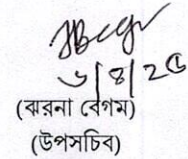 ৬|৪|২৫
(ঝরনা বেগম)
(উপসচিব)